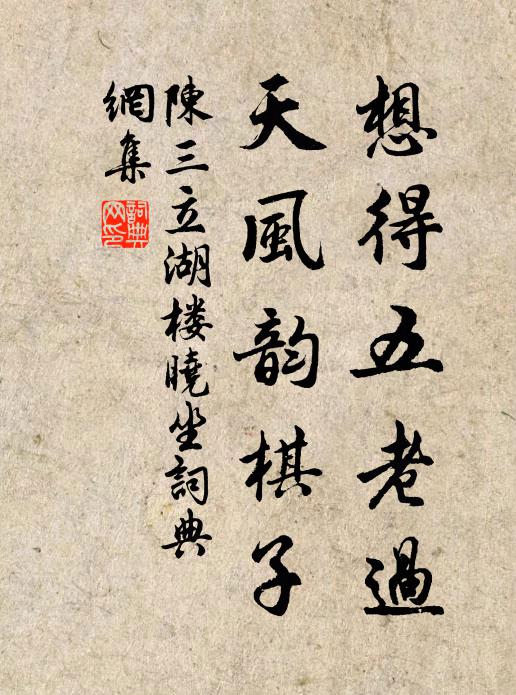 想得五老過
天風韵棋子
陳三立湖楼曉坐詞典
網集
詞典網印